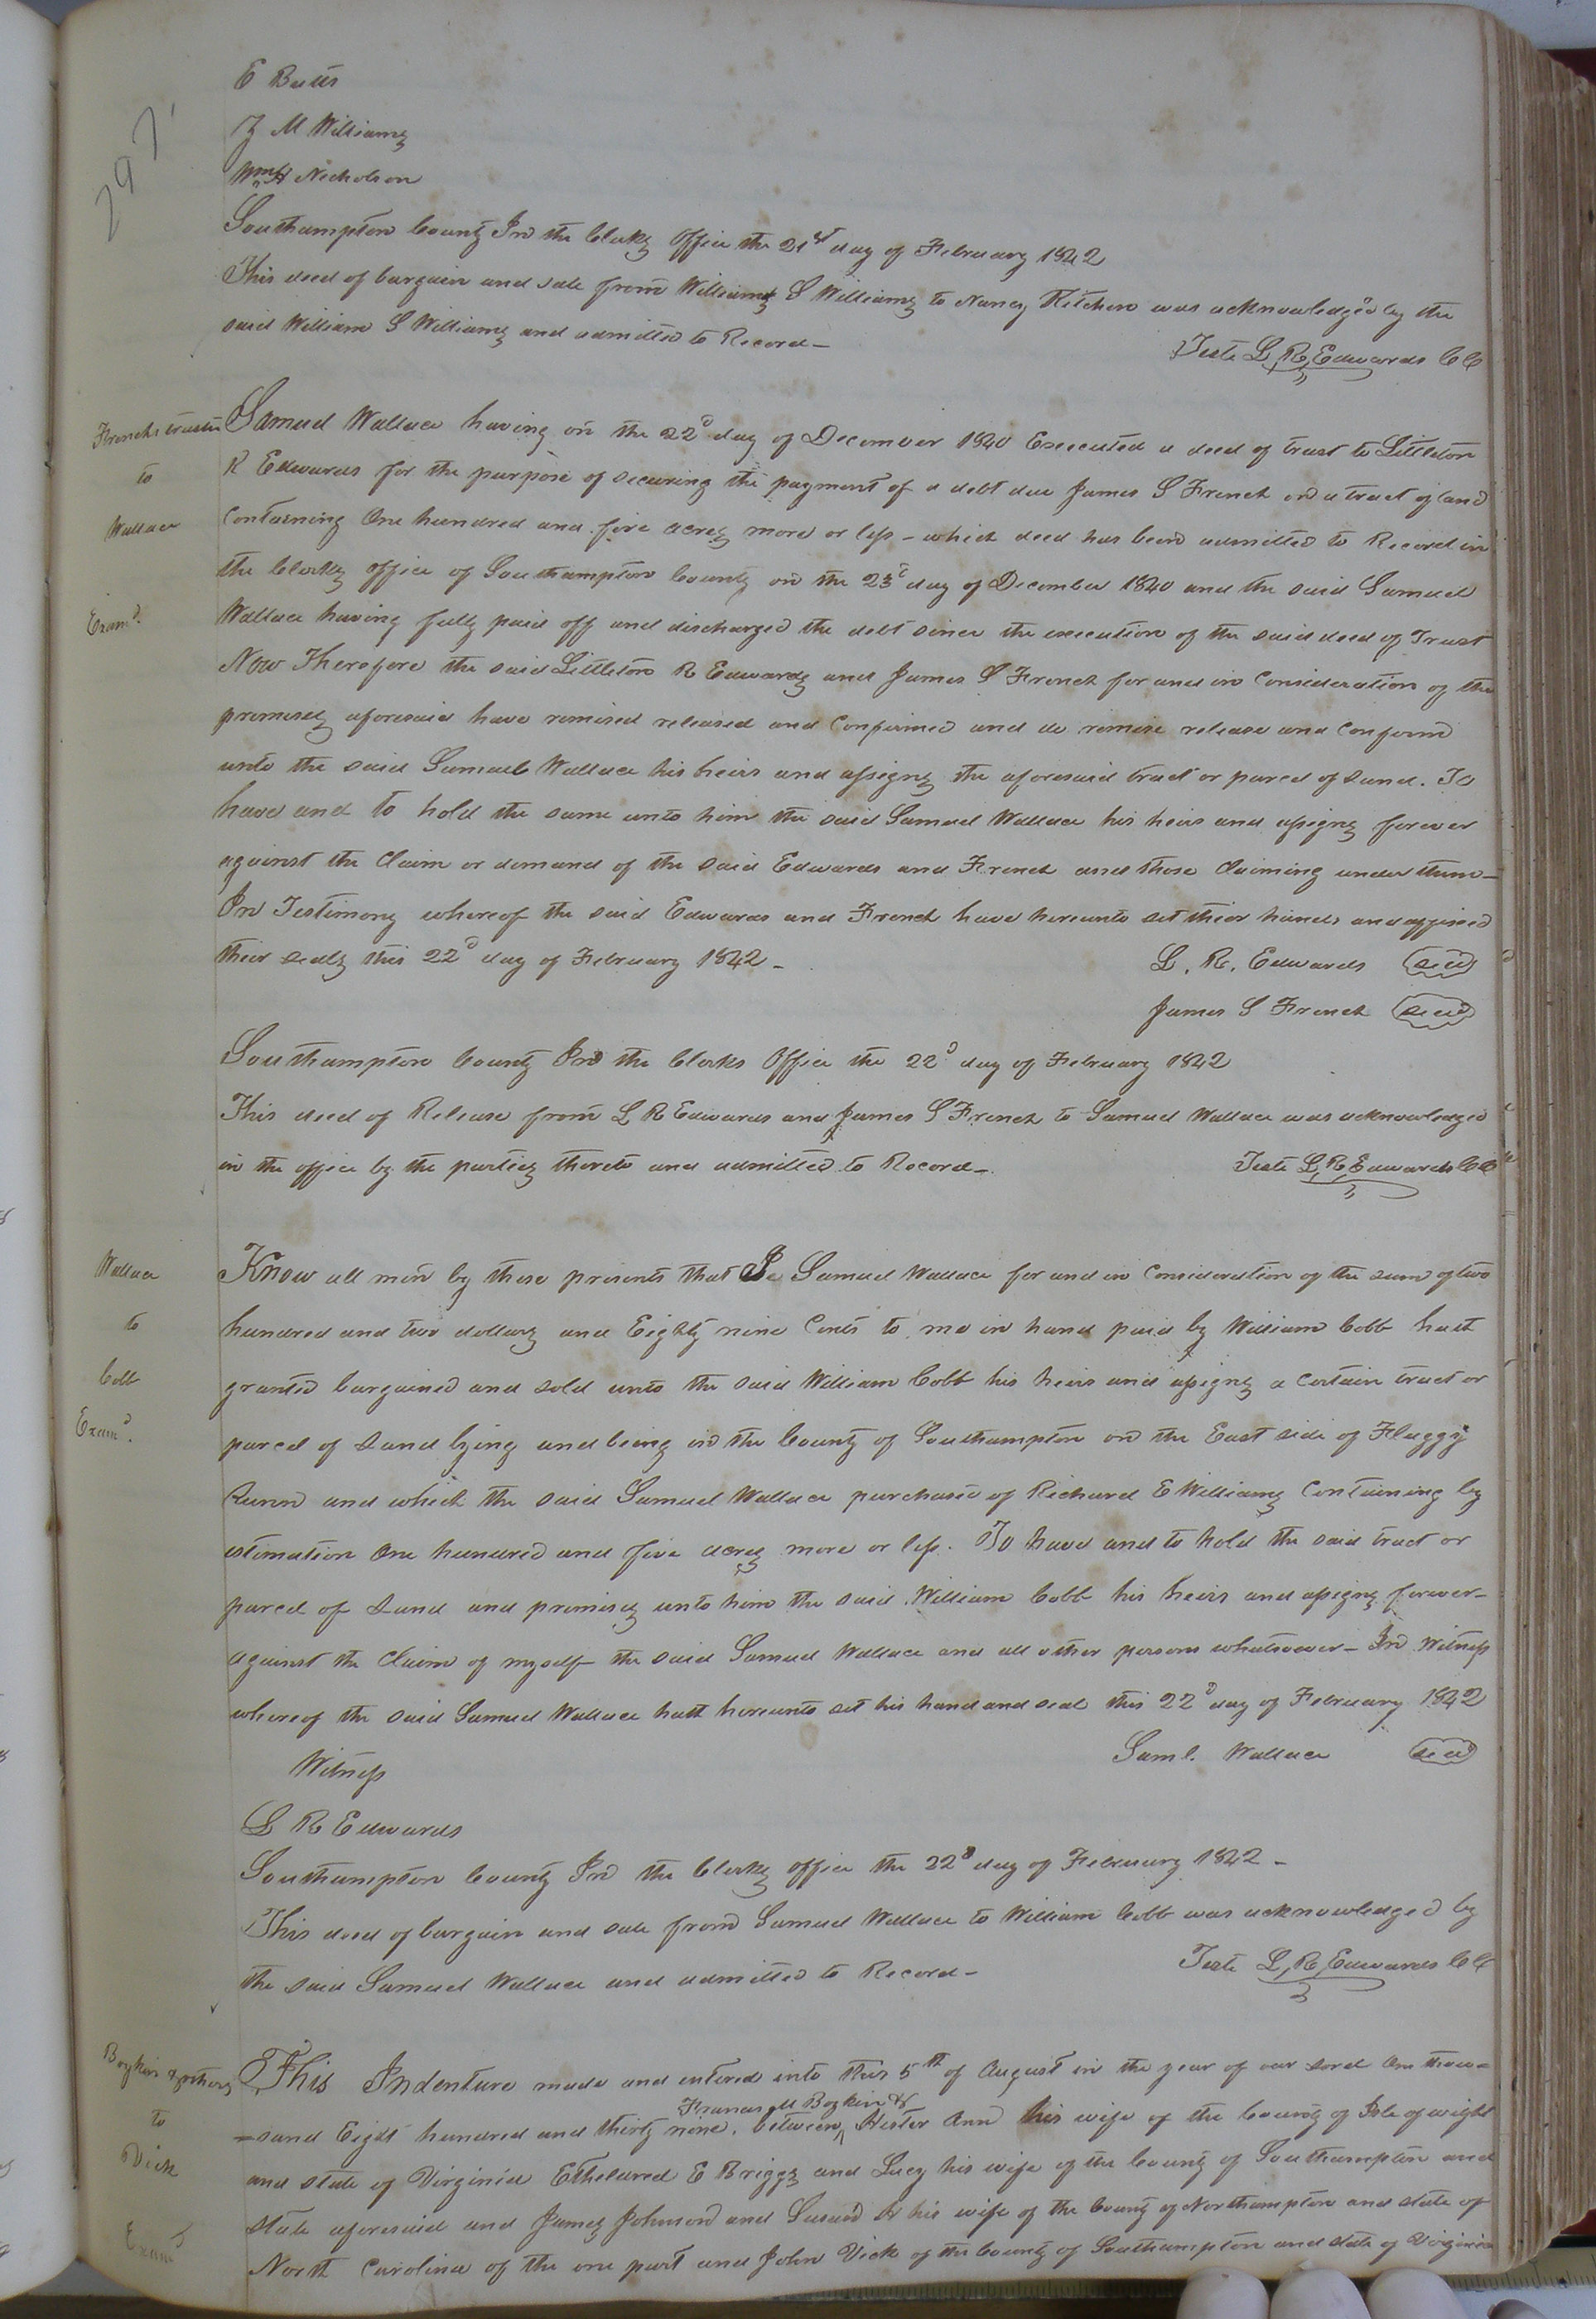 297
E Butts
J M Williams
Wm H Nicholson
Southampton County In the Clerks Office the 21st day of February 1842
This deed of bargain and sale from Williams S Williams to Nancy Kitchen was acknowledged by the
said William S Williams and admitted to Record_
Teste L, R, Edwards CC
Frenchs trustee
to
Wallace
Examd.
Samuel Wallace having on the 22d day of December 1840 Executed a deed of trust to Littleton
R Edwards for the purpose of securing the payment of a debt due James S French on a tract of land
Containing One hundred and five acres more or less - which deed has been admitted to Record in
the Clerks office of Southampton County on the 23d day of December 1840 and the said Samuel
Wallace having fully paid off and discharged the debt since the execution of the said deed of Trust
Now Therefore the said Littleton R Edwards and James S French for and in Consideration of the
premises aforesaid have remised released and Confirmed and do remise release and Confirm
unto the said Samuel Wallace his heirs and assigns the aforesaid tract or parcel of Land. To
have and to hold the same unto him the said Samuel Wallace his heirs and assigns forever
against the Claim or demand of the said Edwards and French and those Claiming under them_
In Testimony whereof the said Edwards and French have hereunto set their hands and affixed
their seals this 22d day of February 1842_
L. R. Edwards seal
James S French seal
Southampton County In the Clerks Office the 22d day of February 1842
This deed of Release from L R Edwards and James S French to Samuel Wallace was acknowledged
in the office by the parties thereto and admitted to Record_
Teste L, R, Edwards CC
Wallace
to
Cobb
Examd.
Know all men by these presents that I Samuel Wallace for and in Consideration of the sum of two
hundred and two dollars and Eighty nine Cents to me in hand paid by William Cobb hath
granted bargained and sold unto the said William Cobb his heirs and assigns a Certain tract or
parcel of Land lying and being in the County of Southampton on the East side of Flaggy
Runn and which the said Samuel Wallace purchased of Richard E Williams Containing by
estimation One hundred and five acres more or less. To have and to hold the said tract or
parcel of Land and premises unto him the said William Cobb his heirs and assigns forever_
against the Claim of myself the said Samuel Wallace and all other persons whatsoever_ In Witness
whereof the said Samuel Wallace hath hereunto set his hand and seal this 22d day of February 1842
Saml. Wallace seal
Witness
L R Edwards
Southampton County In the Clerks office the 22d day of February 1842_
This deed of bargain and sale from Samuel Wallace to William Cobb was acknowledged by
the said Samuel Wallace and admitted to Record_
Teste L, R, Edwards CC
Boykin & others
to
Vick
Examd
This Indenture made and entered into this 5th of August in the year of our Lord One thou=
=sand Eight hundred and thirty nine. between Francis M Boykin & Hester Ann his wife of the County of Isle of wight
and state of Virginia Ethelured E Briggs and Lucy his wife of the County of Southampton and
state aforesaid and James Johnson and Susan H his wife of the County of Northampton and state of
North Carolina of the one part and John Vick of the County of Southampton and state of Virginia